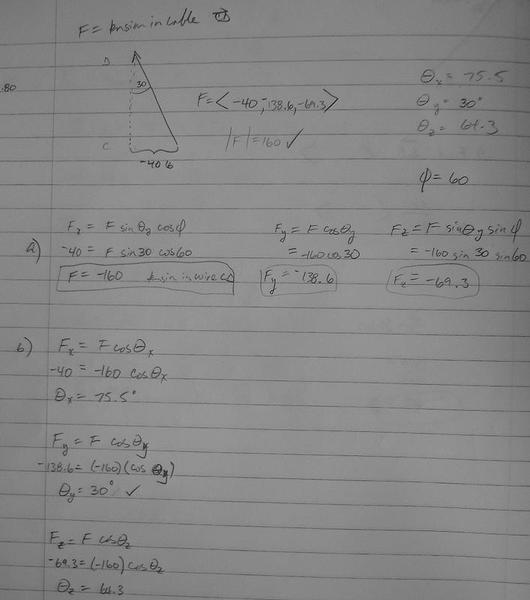 F = tension in cable
.80
D
30
C
-40 lb
F = < -40, -138.6, -69.3 >
|F| = 160 ✓
θx = 75.5
θy = 30°
θz = 64.3
φ = 60
a)
Fx = F sinθy cosφ
-40 = F sin30 cos60
F = -160 tension in wire CD
Fy = F cosθy
= -160 cos 30
Fy = -138.6
Fz = F sinθy sinφ
= -160 sin 30 sin 60
Fz = -69.3
b)
Fx = F cosθx
-40 = -160 cosθx
θx = 75.5°
Fy = F cosθy
-138.6 = (-160)(cos θy)
θy = 30° ✓
Fz = F cosθz
-69.3 = (-160) cosθz
θz = 64.3